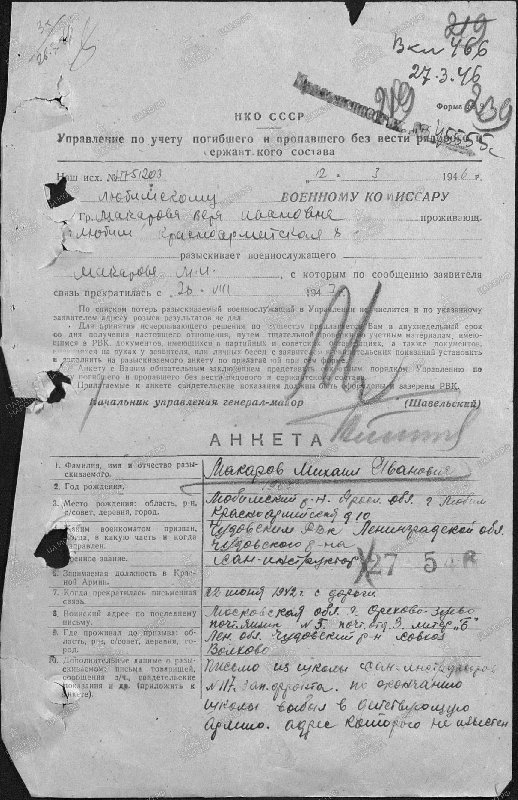 219
Вкл 466
27.3.46
Форма
219
239
45555с
НКО СССР
Управление по учету погибшего и пропавшего без вести рядового и
сержантского состава
Наш исх. №
12. 3 1946 г.
Любимскому ВОЕННОМУ КОМИССАРУ
Гр. Макарова Вера Ивановна проживающ.
Любим Красноармейская 8
разыскивает военнослужащего
Макарова М.И. с которым по сообщению заявителя
связь прекратилась с 26 VIII 194
По спискам потерь разыскиваемый военнослужащий в Управлении не числится и по указанному
заявителем адресу розыск результатов не дал.
Для принятия исчерпывающего решения по существу предлагаю Вам в двухнедельный срок
со дня получения настоящего отношения путем тщательной проверки учетным материалам, имеющимся
в РВК, документов, имеющихся в партийных и советских организациях, а также документов,
имеющихся на руках у заявителя, или личных бесед с заявителем и свидетельских показаний установить
и заполнить на разыскиваемого анкету по принятой при сем форме.
Анкету с Вашим обязательным заключением представить установленным порядком Управлению по
погибшего и пропавшего без вести рядового и сержантского
Прилагаемые к анкете свидетельские показания должны быть оформлены и заверены РВК.
Начальник управления генерал-майор (Шавельский)
АНКЕТА
1. Фамилия, имя и отчество разыскиваемого.
Макаров Михаил Иванович
2. Год рождения.
3. Место рождения: область, р-н, с/совет, деревня, город.
Любимский р-н. Яросл. обл. г Любим
Красноармейская д 10
Каким военкоматом призван, когда, в какую часть и когда направлен.
Чудовским РВК Ленинградской обл.
Чудовского р-на
Военное звание.
Сан-инструктор
27 5
6. Занимаемая должность в Красной Армии.
7. Когда прекратилась письменная связь.
22 июня 1942 г с дороги
8. Воинский адрес по последнему письму.
Московская обл. г Орехово-Зуево
почт.ящик № 5 почт.отд 3. литер "Б"
9. Где проживал до призыва: область, р-н, с/совет, деревня, город.
Лен. обл. Чудовский р-н совхоз
Волхово
10. Дополнительные данные о разыскиваемом: письма товарищей, сообщения в/ч, свидетельские показания и др. (приложить к анкете).
Письмо из школы сан-инструкторов
№ 117. Зап. фронта. по окончанию
школы выбыл в действующую
армию. адрес которого не известен